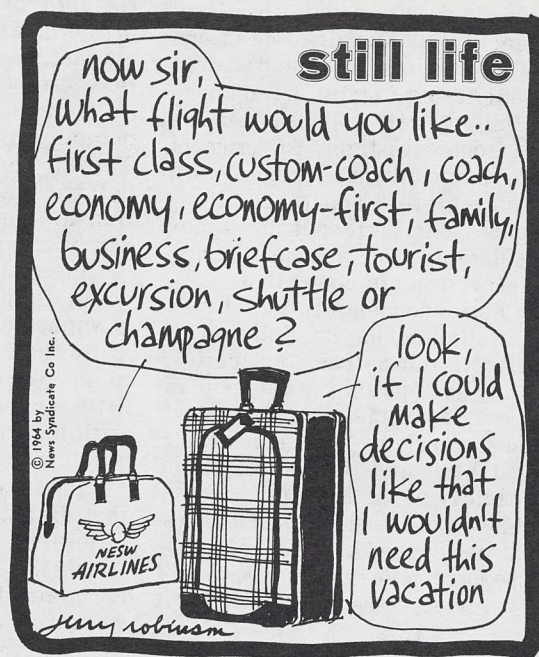 still life
now sir,
what flight would you like..
first class, custom-coach, coach,
economy, economy-first, family,
business, briefcase, tourist,
excursion, shuttle or
champagne?
look,
if I could
make
decisions
like that
I wouldn't
need this
vacation
© 1964 by
News Syndicate Co Inc.
NESW
AIRLINES
jerry robinson